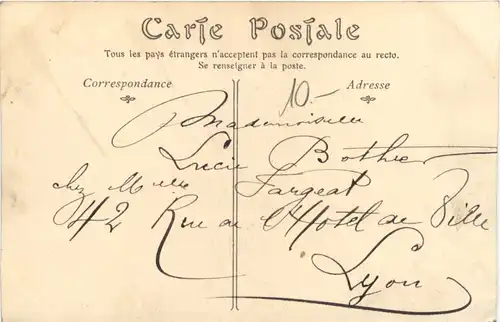 Carte Postale
Tous les pays étrangers n'acceptent pas la correspondance au recto.
Se renseigner à la poste.
Correspondance
Adresse
10.-
Mademoiselle
Lucie Bothier
chez Melle Fargeat
42 Rue de l'Hôtel de Ville
Lyon